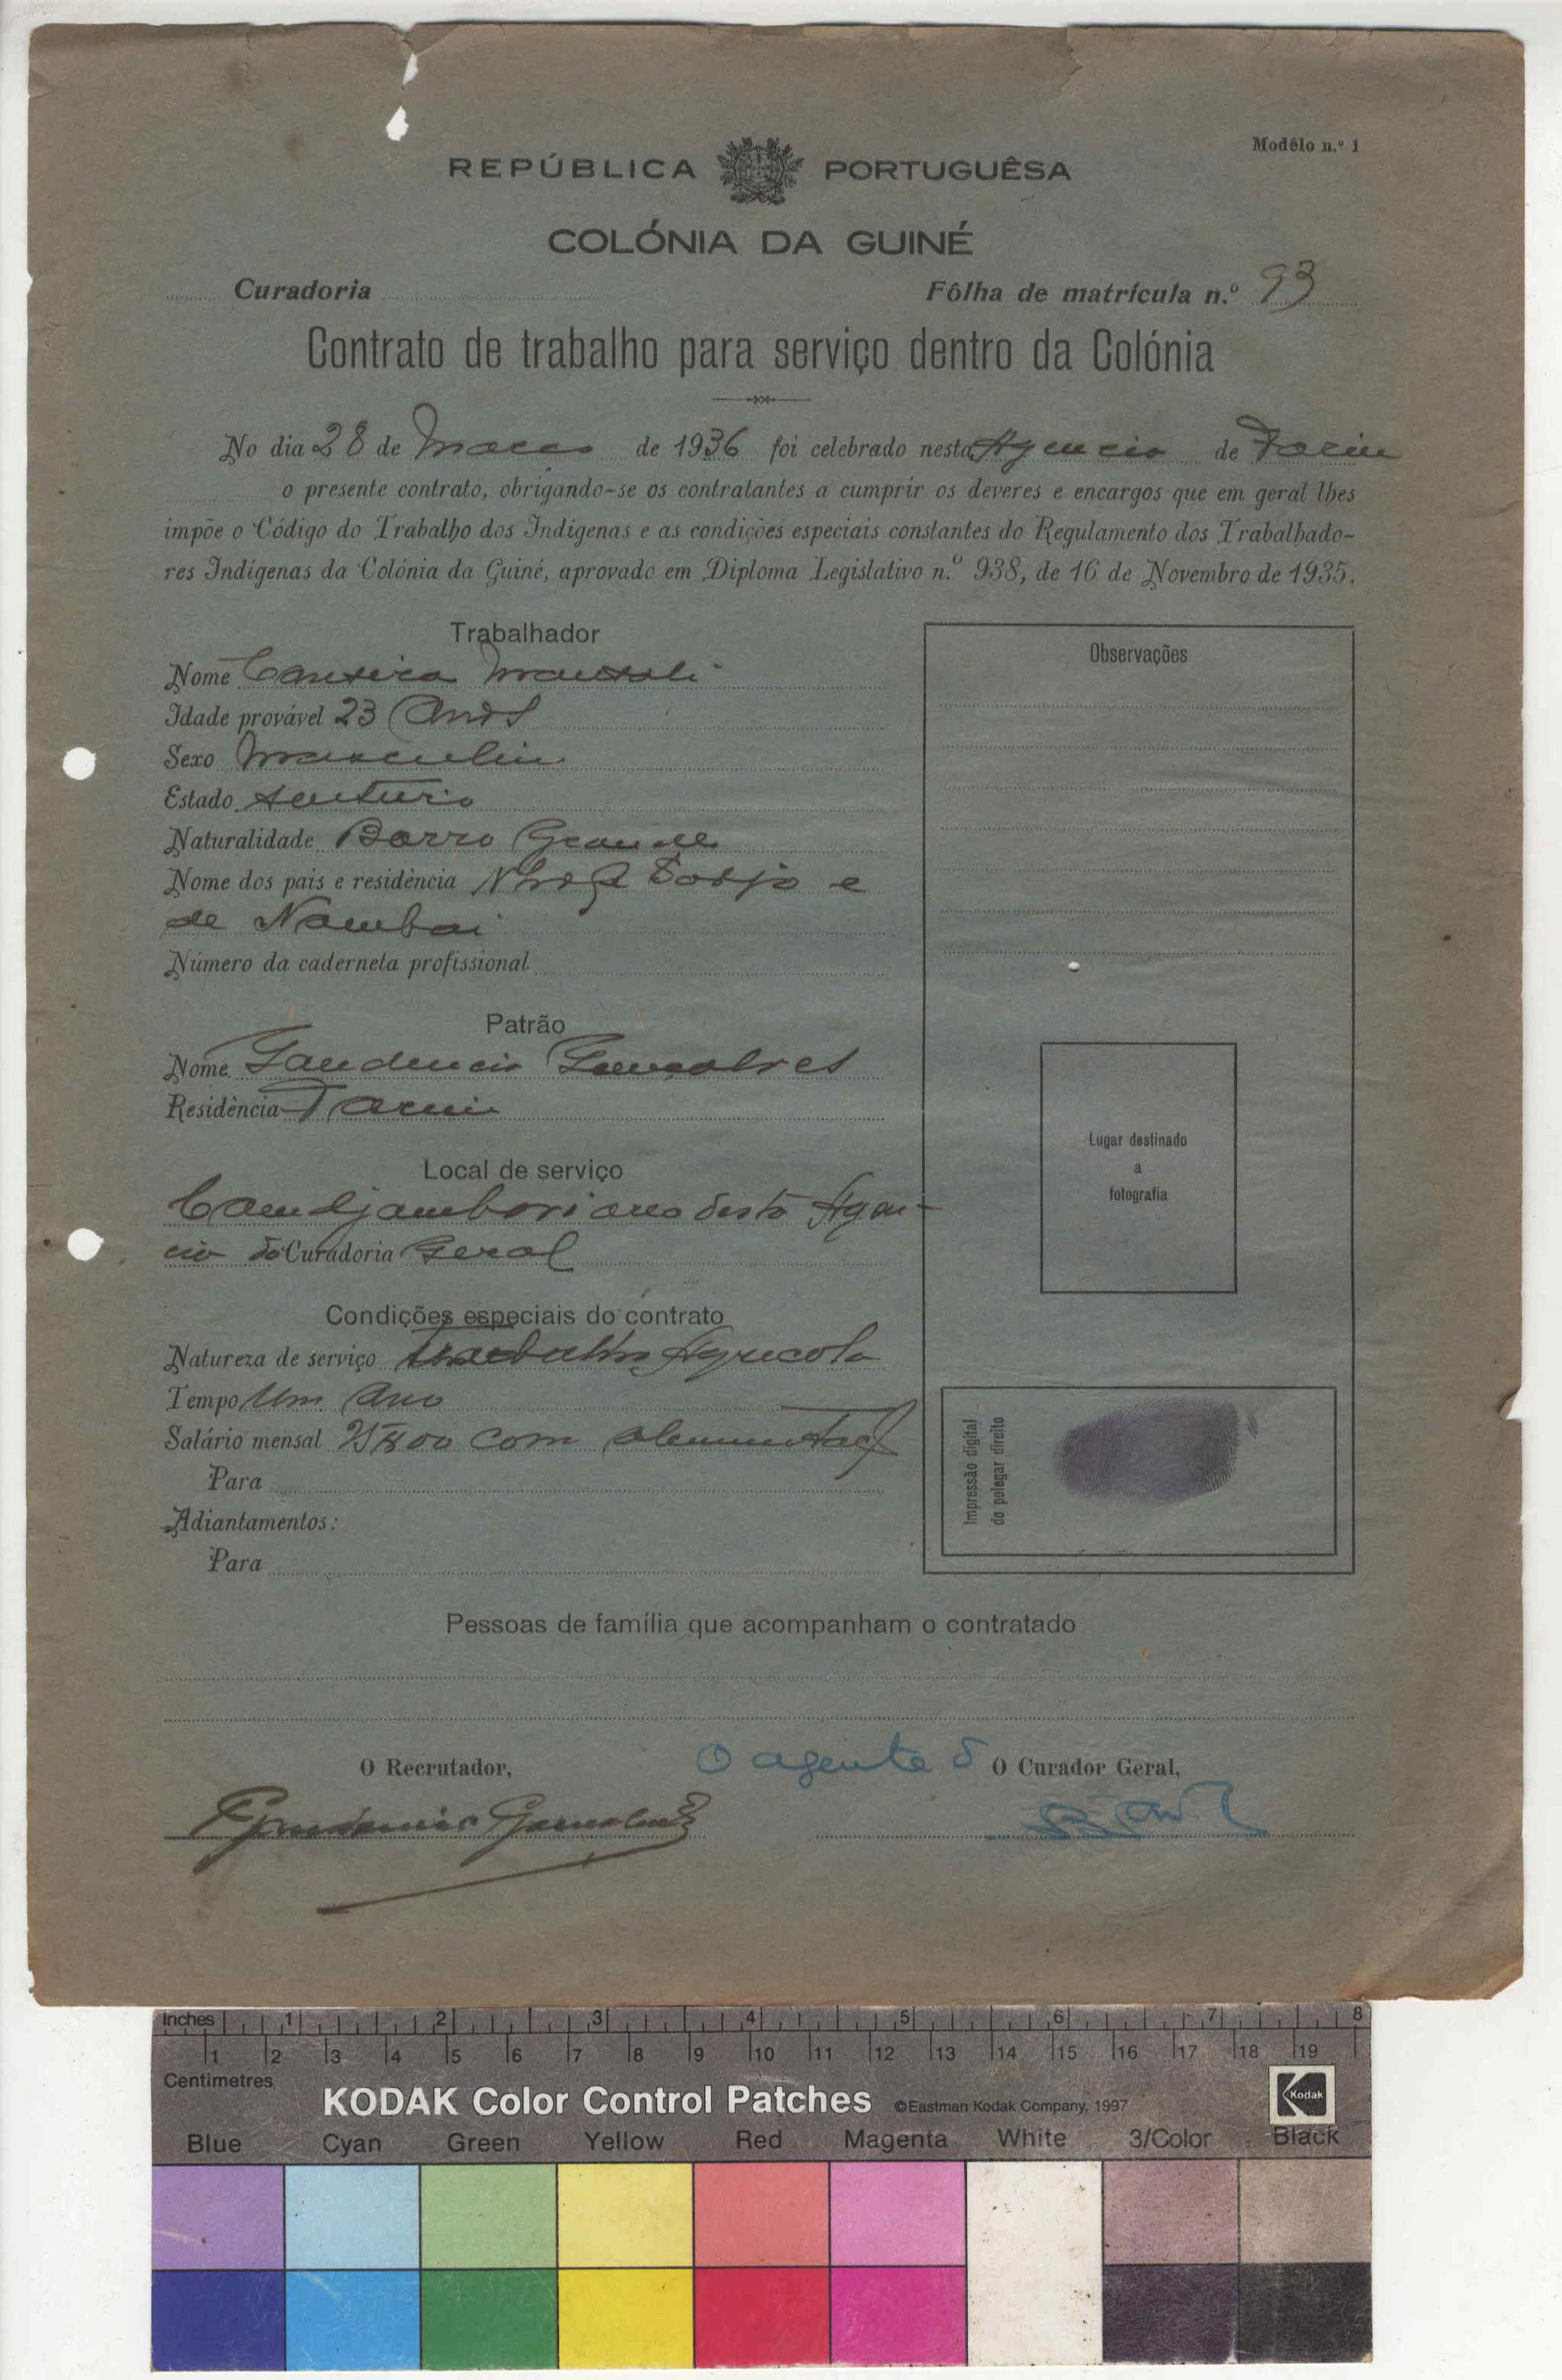 Modêlo n.º 1
REPÚBLICA PORTUGUÊSA
COLÓNIA DA GUINÉ
Curadoria
Fôlha de matrícula n.º 93
Contrato de trabalho para serviço dentro da Colónia
No dia 28 de Março de 1936 foi celebrado nesta Agencia de Farim
o presente contrato, obrigando-se os contratantes a cumprir os deveres e encargos que em geral lhes
impõe o Código do Trabalho dos Indígenas e as condições especiais constantes do Regulamento dos Trabalhado-
res Indígenas da Colónia da Guiné, aprovado em Diploma Legislativo n.º 938, de 16 de Novembro de 1935.
Trabalhador
Nome
Idade provável 23 Anos
Sexo Masculino
Estado
Naturalidade Barro Grande
Nome dos pais e residência e
de Nambai
Número da caderneta profissional
Patrão
Nome Gaudencio Gonçalves
Residência Farim
Local de serviço
Camdjambori area desta Agen-
cia da Curadoria Geral
Condições especiais do contrato
Natureza de serviço trabalho Agricola
Tempo Um Ano
Salário mensal com
Para
Adiantamentos:
Para
Observações
Lugar destinado
a
fotografia
Impressão digital
do polegar direito
Pessoas de família que acompanham o contratado
O Recrutador,
O agente d O Curador Geral,
Gaudencio Gonçalves
Inches 1 2 3 4 5 6 7 8
1 2 3 4 5 6 7 8 9 10 11 12 13 14 15 16 17 18 19
Centimetres
KODAK Color Control Patches ©Eastman Kodak Company, 1997 Kodak
Blue Cyan Green Yellow Red Magenta White 3/Color Black